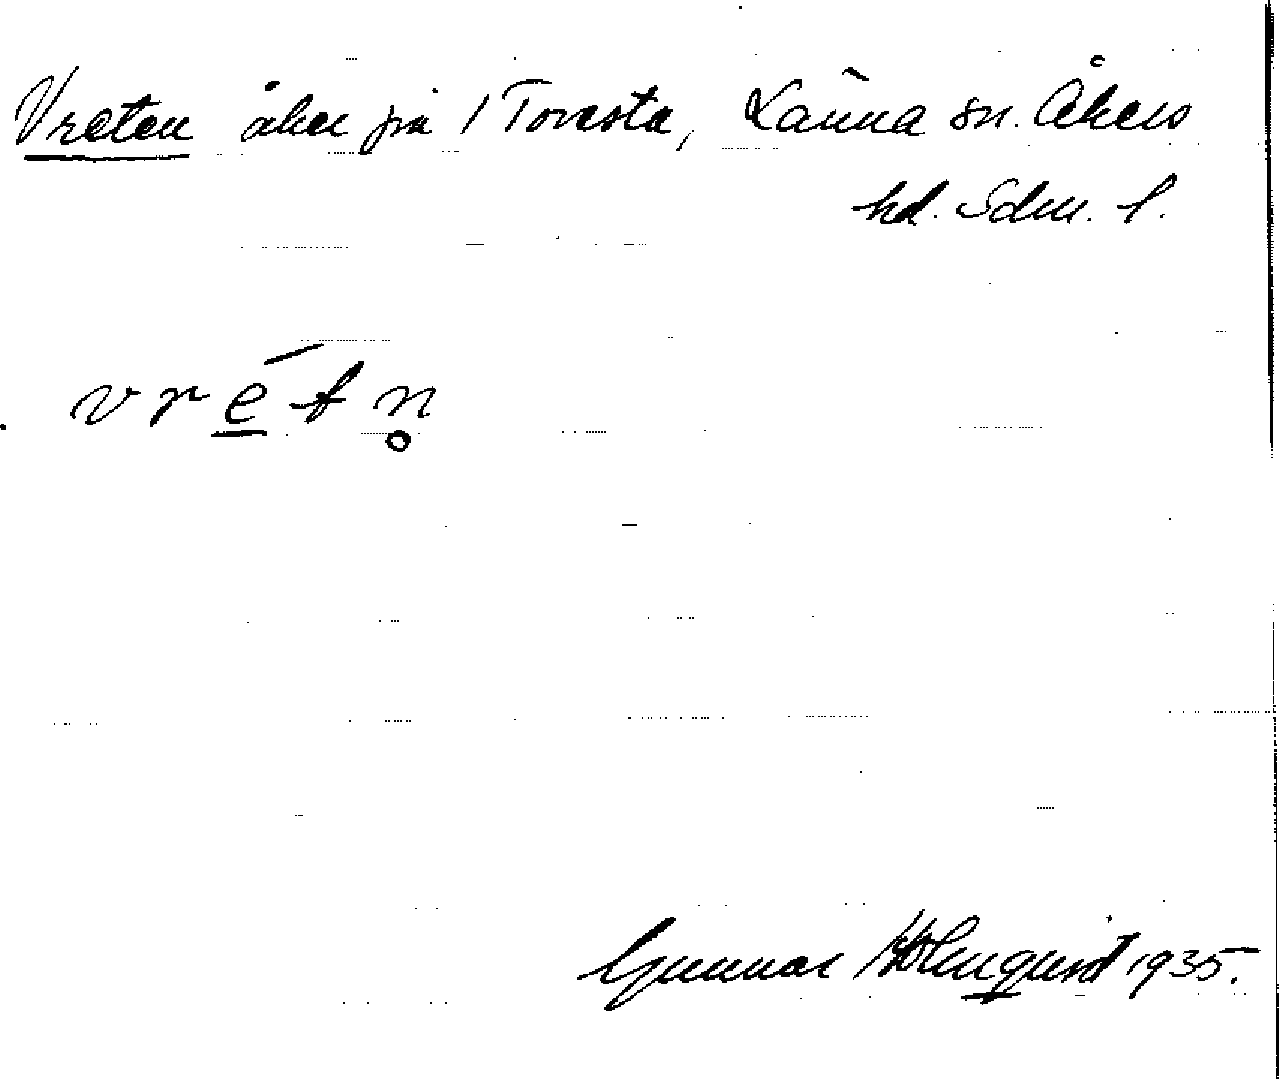 Vreten åker på 1 Toresta, Länna sn. Åkers
hd. Sdm. l.
v r é t n̥
Gunnar Holmquist 1935.